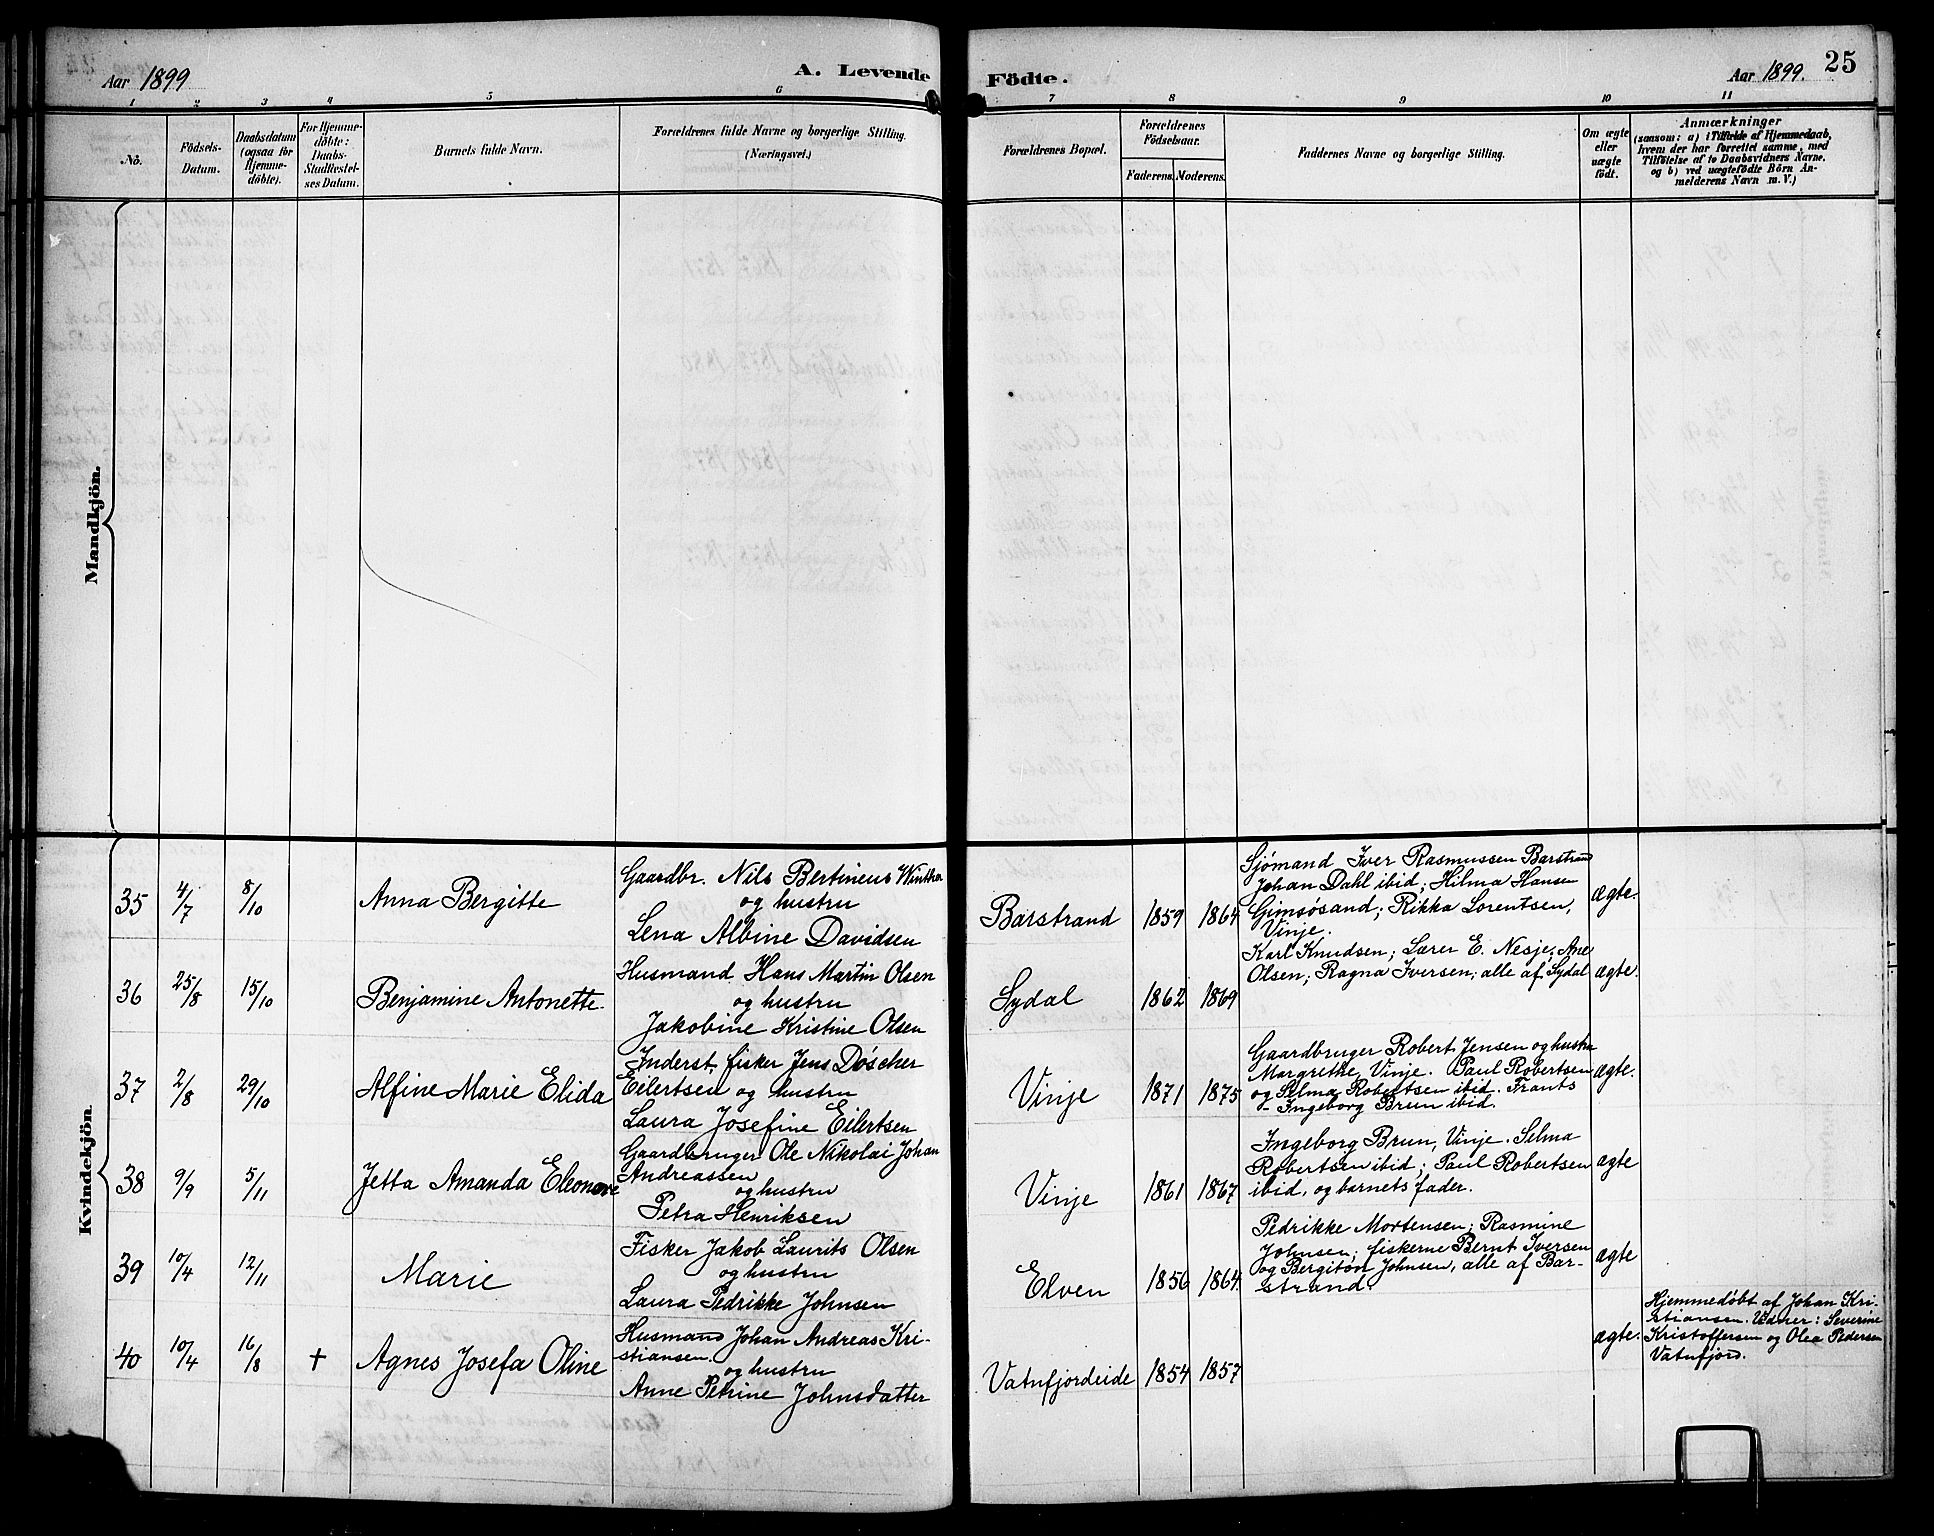 Aar 1899
A. Levende
Födte.
Aar 1899.
25
1 2 3 4 5 6 7 8 9 10 11
No.
Födsels-
Datum.
Daabsdatum
(ogsaa for
Hjemme-
döbte).
For Hjemme-
döbte:
Daabs-
Stadfæstel-
ses Datum.
Barnets fulde Navn.
Forældrenes fulde Navne og borgerlige Stilling.
(Næringsvei.)
Forældrenes Bopæl.
Forældrenes
Födselsaar.
Faderens. Moderens.
Faddernes Navne og borgerlige Stilling.
Om ægte
eller
uægte
födt.
Anmærkninger
(saasom: a) i Tilfælde af Hjemmedaab,
hvem der har forrettet samme, med
Tilföielse af to Daabsvidners Navne,
og b) ved uægtefödte Börn An-
melderens Navn m. V.)
Mandkjön.
Kvindekjön.
35 4/7 8/10 Anna Bergitte
Gaardbr. Nils Bertineus Winther
og hustru
Lena Albine Davidsen
Barstrand 1859 1864
Sjömand Iver Rasmussen Barstrand
Johan Dahl ibid; Hilma Hansen
Gimsösand; Rikka Lorentsen,
Vinje.
ægte.
36 25/8 15/10 Benjamine Antonette
Husmand Hans Martin Olsen
og hustru
Jakobine Kristine Olsen
Sydal 1862 1869
Karl Knudsen; Lærer E. Nesje; Ane
Olsen; Ragna Iversen; alle af Sydal
ægte.
37 2/8 29/10 Alfine Marie Elida
Inderst, fisker Jens Döscher
Eilertsen og hustru
Laura Josefine Eilertsen
Vinje 1871 1875
Gaardbruger Robert Jensen og hustru
Margrethe, Vinje. Paul Robertsen
og Selma Robertsen ibid. Frants
- Ingeborg Brun ibid.
ægte.
38 9/9 5/11 Jetta Amanda Eleonore
Gaardbruger Ole Nikolai Johan
Andreassen
og hustru
Petra Henriksen
Vinje 1861 1867
Ingeborg Brun, Vinje. Selma
Robertsen ibid; Paul Robertsen
ibid, og barnets fader.
ægte
39 10/4 12/11 Marie
Fisker Jakob Laurits Olsen
og hustru
Laura Pedrikke Johnsen
Elven 1856 1864
Pedrikke Mortensen; Rasmine
Johnsen; fiskerne Bernt Iversen
og Bergiton Johnsen, alle af Bar-
strand.
ægte
40 10/4 16/8 + Agnes Josefa Oline
Husmand Johan Andreas Kri-
stiansen.
og hustru
Anne Petrine Johnsdatter
Vatnfjordeide 1854 1857
ægte.
Hjemmedöbt af Johan Kri-
stiansen. Vidner: Severine
Kristoffersen og Olea Pedersen
Vatnfjord.